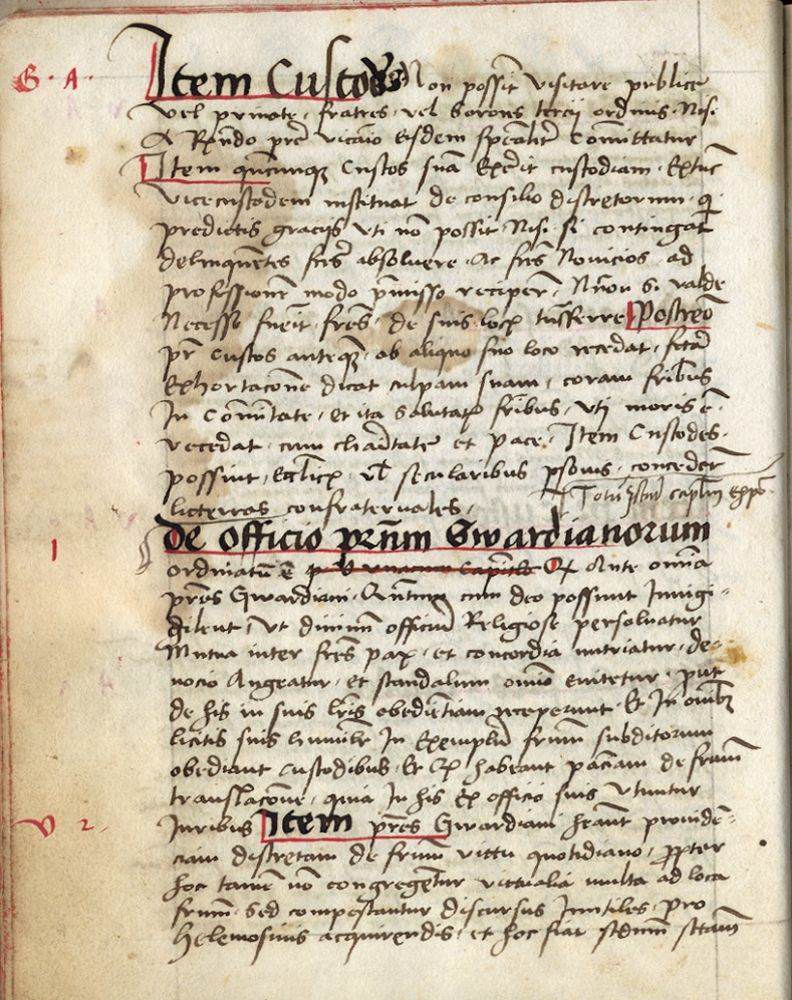 G. A.
Item Custodes Non possit visitare publice
vel private, fratres, vel sorores tercii ordinis. Nisi
A Rndo pre vicario eisdem spealitr Comittatur
Item quicunque Custos sua Exierit custodiam. Extuc
vicecustodem instituat de consilio discretorum. qi
predictis graciis uti non possit Nisi si contingat
delinquentes frs absolvere. Ac frs Novicios, ad
professionem modo pmisso reciper, Non si valde
Necesse fuerit, fres, de suis locis tnsferre Postreo
pr Custos anteque, ab aliquo suo loco recedat, fcta
Exhortacone dicat culpam suam, coram fribus
In Comitate, et ita salutat fribus, uti moris e.
recedat. cum charitate et pace. Item Custodes.
possint, Ecclicis vl secularibus psonis, conceder
litterras confraternales.
Totu istud caplm
De officio prum Gwardianorum
1
ordinatu e Q Ante omnia
pres Gwardiani. Quntum cum deo possunt Invigi-
gilent, Ut divinum officiu Religiose persolvatur
Mutua inter fres pax, et concordia nutriatur, de-
vocio Augeatur, et scandalum omnio evitetur, put
de his in suis lris obedietiam receperunt. Et In omibz
licitis suis humilr In Exemplu frum subditorum
obediant Custodibus. Et Q habeant paciam de frum
translacone, quia In his Ex officio suis Utuntur
V 2.
Iuribus Item pres Gwardiani heant providen-
ciam discretam de frum victu quotidiano, propter
hoc tamen no congregetur victualia multa ad loca
frum. Sed compescantur discursus Inutiles, pro
helemosinis acquirendis, et hoc fiat scdum